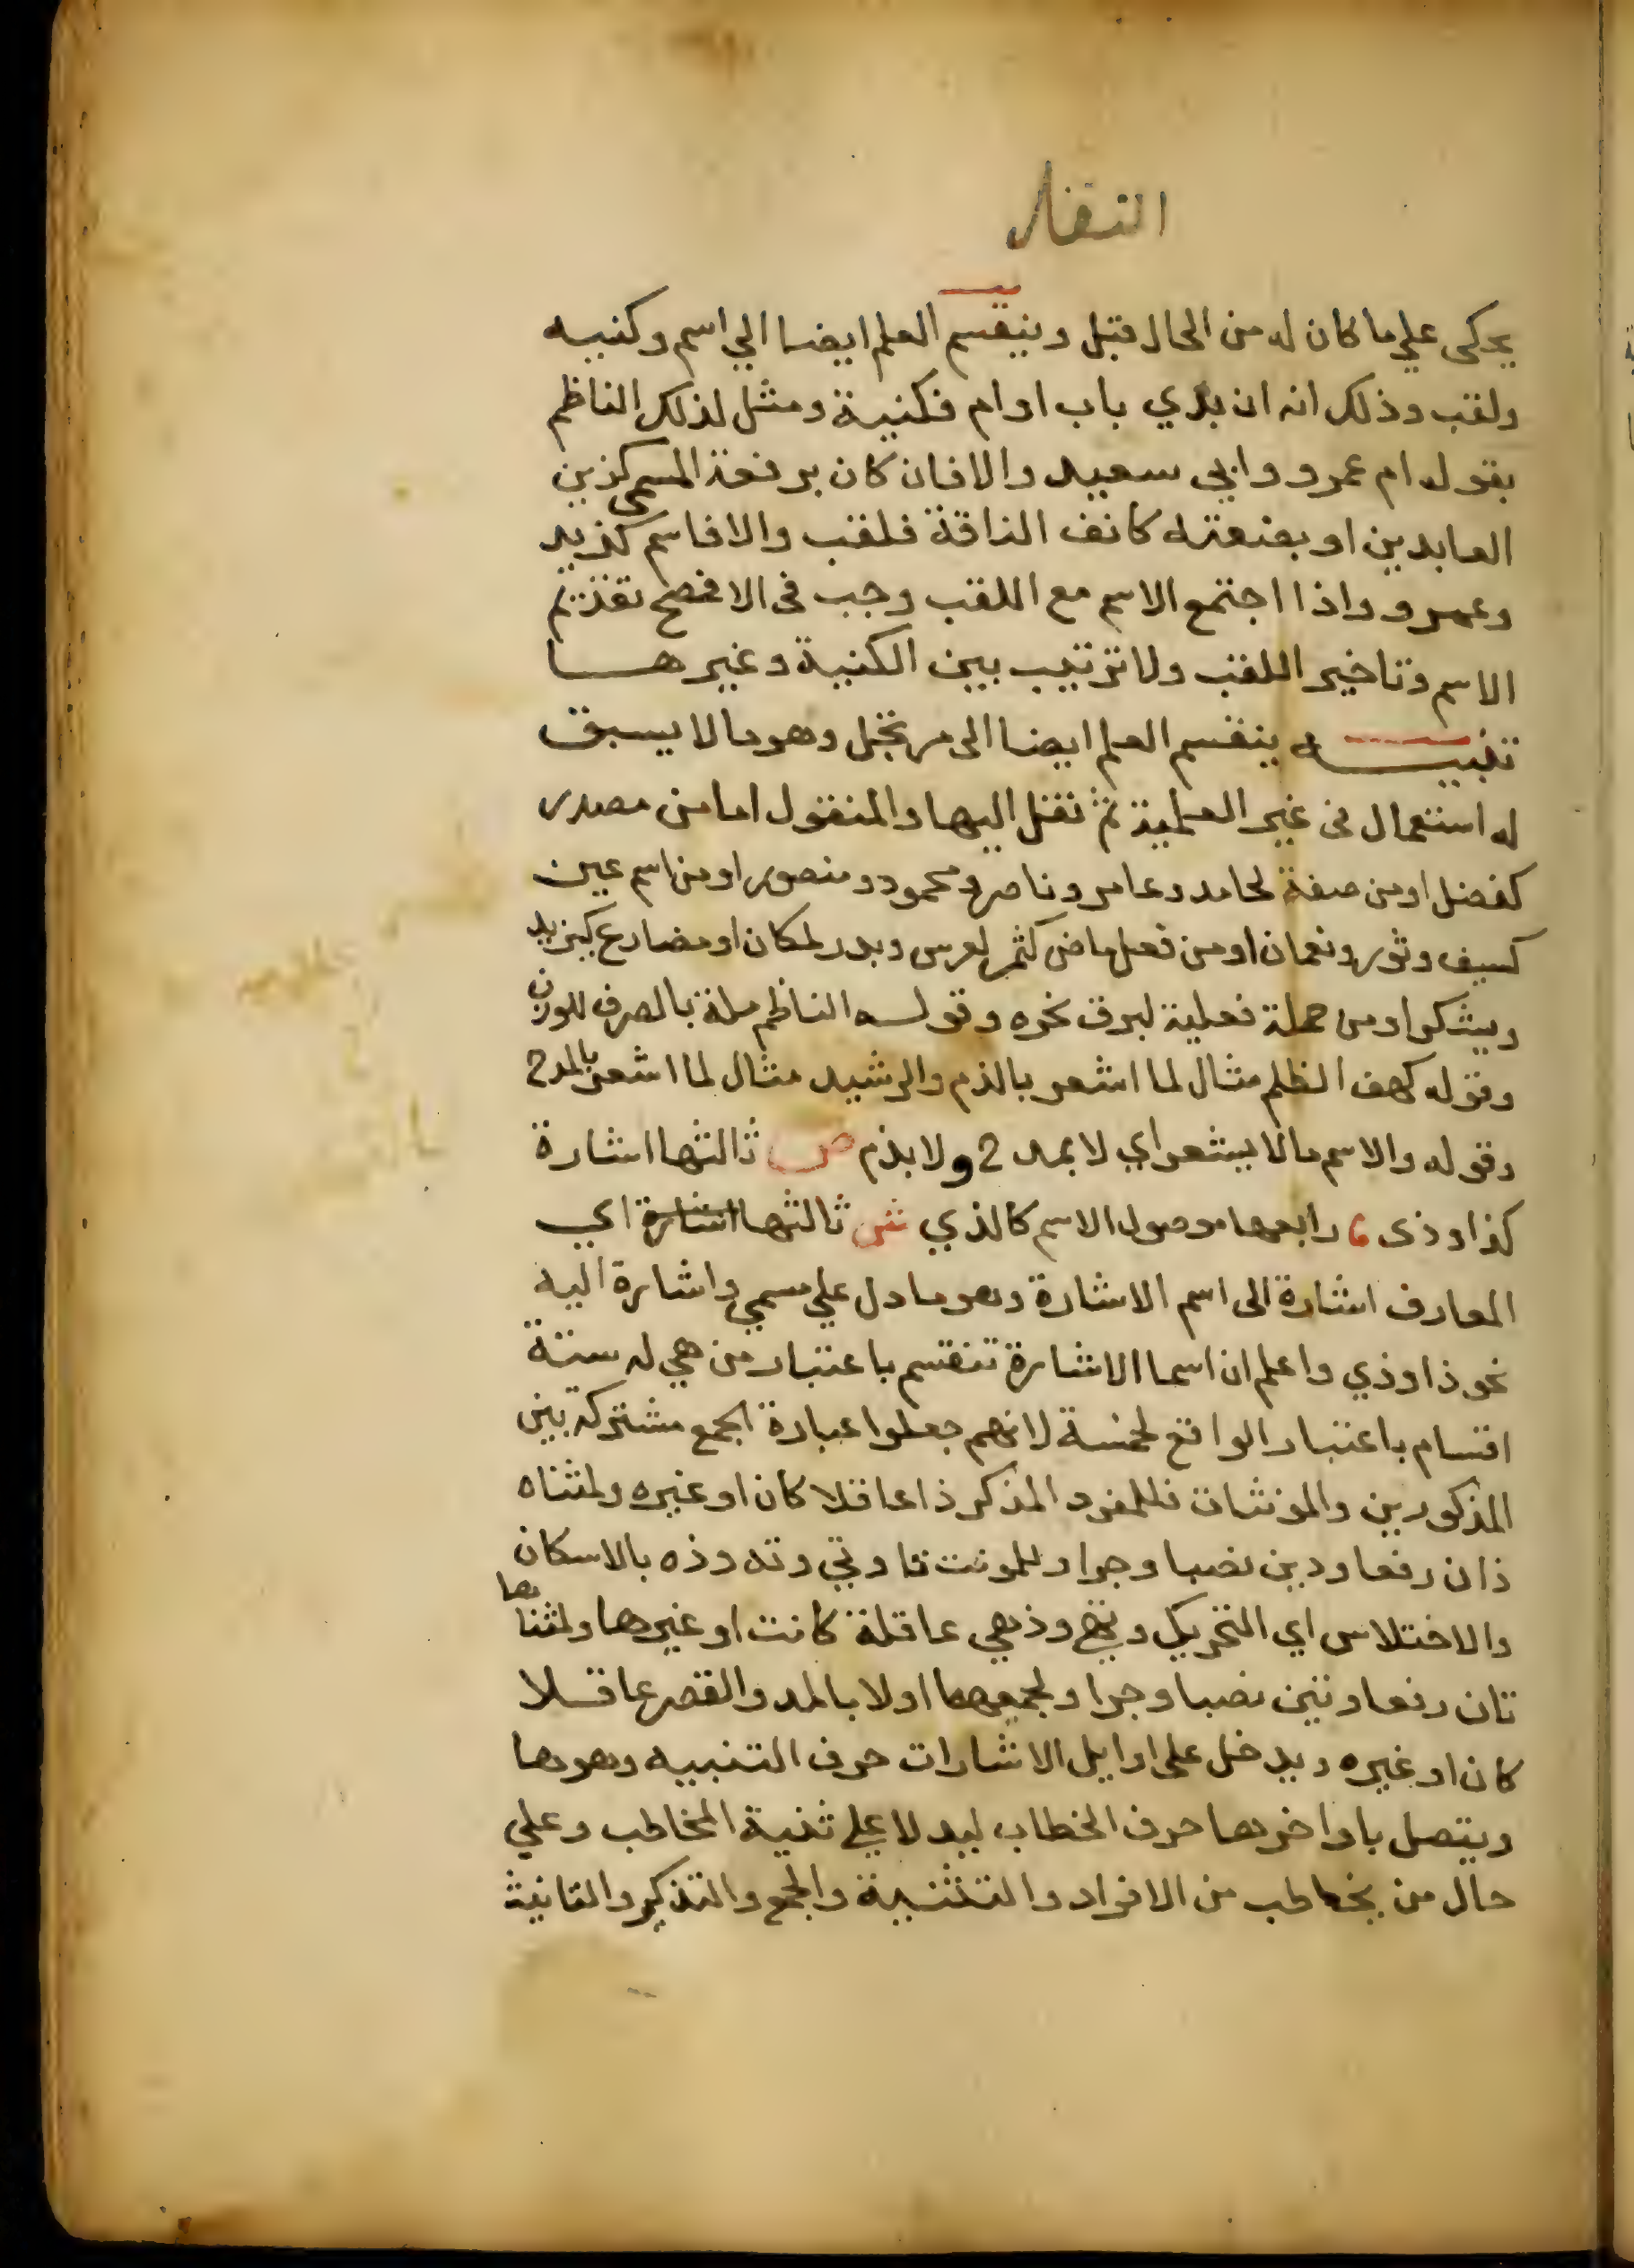 يحكى على ما كان له من الحال قبل وينقسم العلم ايضا الي اسم وكنيه
ولقب وذلك انه ان بدي باب او ام فكنية ومثل لذلك الناظم
بقوله ام عمرو وابي سعيد والا فان كان برفعة المسمى كزين
العابدين او بضعته كانف الناقة فلقب والا فاسم كزيد
وعمرو واذا اجتمع الاسم مع اللقب وجب في الافصح تقديم
الاسم وتاخير اللقب ولا ترتيب بين الكنية وغيرها
تنبيه ينقسم العلم ايضا الى مرتجل وهو ما لا يسبق
له استعمال في غير العلمية ثم نقل اليها والمنقول اما من مصدر
كفضل او من صفة كحامد وعامر وناصر ومحمود ومنصور او من اسم عين
كسيف وثور ونعمان او من فعل ماض كشمر لفرس وبدر لمكان او مضارع كيزيد
ويشكر او من جملة فعلية كبرق نحره وقولـه الناظم ملة بالصرف للوزن
وقوله كهف الظلم مثال لما اشعر بالذم والرشيد مثال لما اشعر بالمدح
وقوله والاسم ما لا يشعر اي لا بمدح ولا بذم ص ثالثها اشارة
كذا وذى رابعها موصول الاسم كالذي ش ثالثها اشارة اي
المعارف اشارة الى اسم الاشارة وهو ما دل علي مسمي واشارة اليه
نحو ذا وذي واعلم ان اسما الاشارة تنقسم باعتبار من هي له ستة
اقسام باعتبار الواقع لخمسة لانهم جعلوا عبارة الجمع مشتركة بين
المذكورين والمونثات فللمفرد المذكر ذا عاقلا كان او غيره ولمثناه
ذان رفعا وذين نصبا وجرا وللمونث تا وتي وته وذه بالاسكان
والاختلاس اي التحريك وتهي وذهي عاقلة كانت او غيرها ولمثناها
تان رفعا وتين نصبا وجرا ولجمعهما اولا بالمد والقصر عاقلا
كان او غيره ويدخل على اوايل الاشارات حرف التنبيه وهو ها
ويتصل باواخرها حرف الخطاب ليدلا علي ثنية المخاطب وعلي
حال من يخاطب من الافراد والتثنية والجمع والتذكير والتانيث